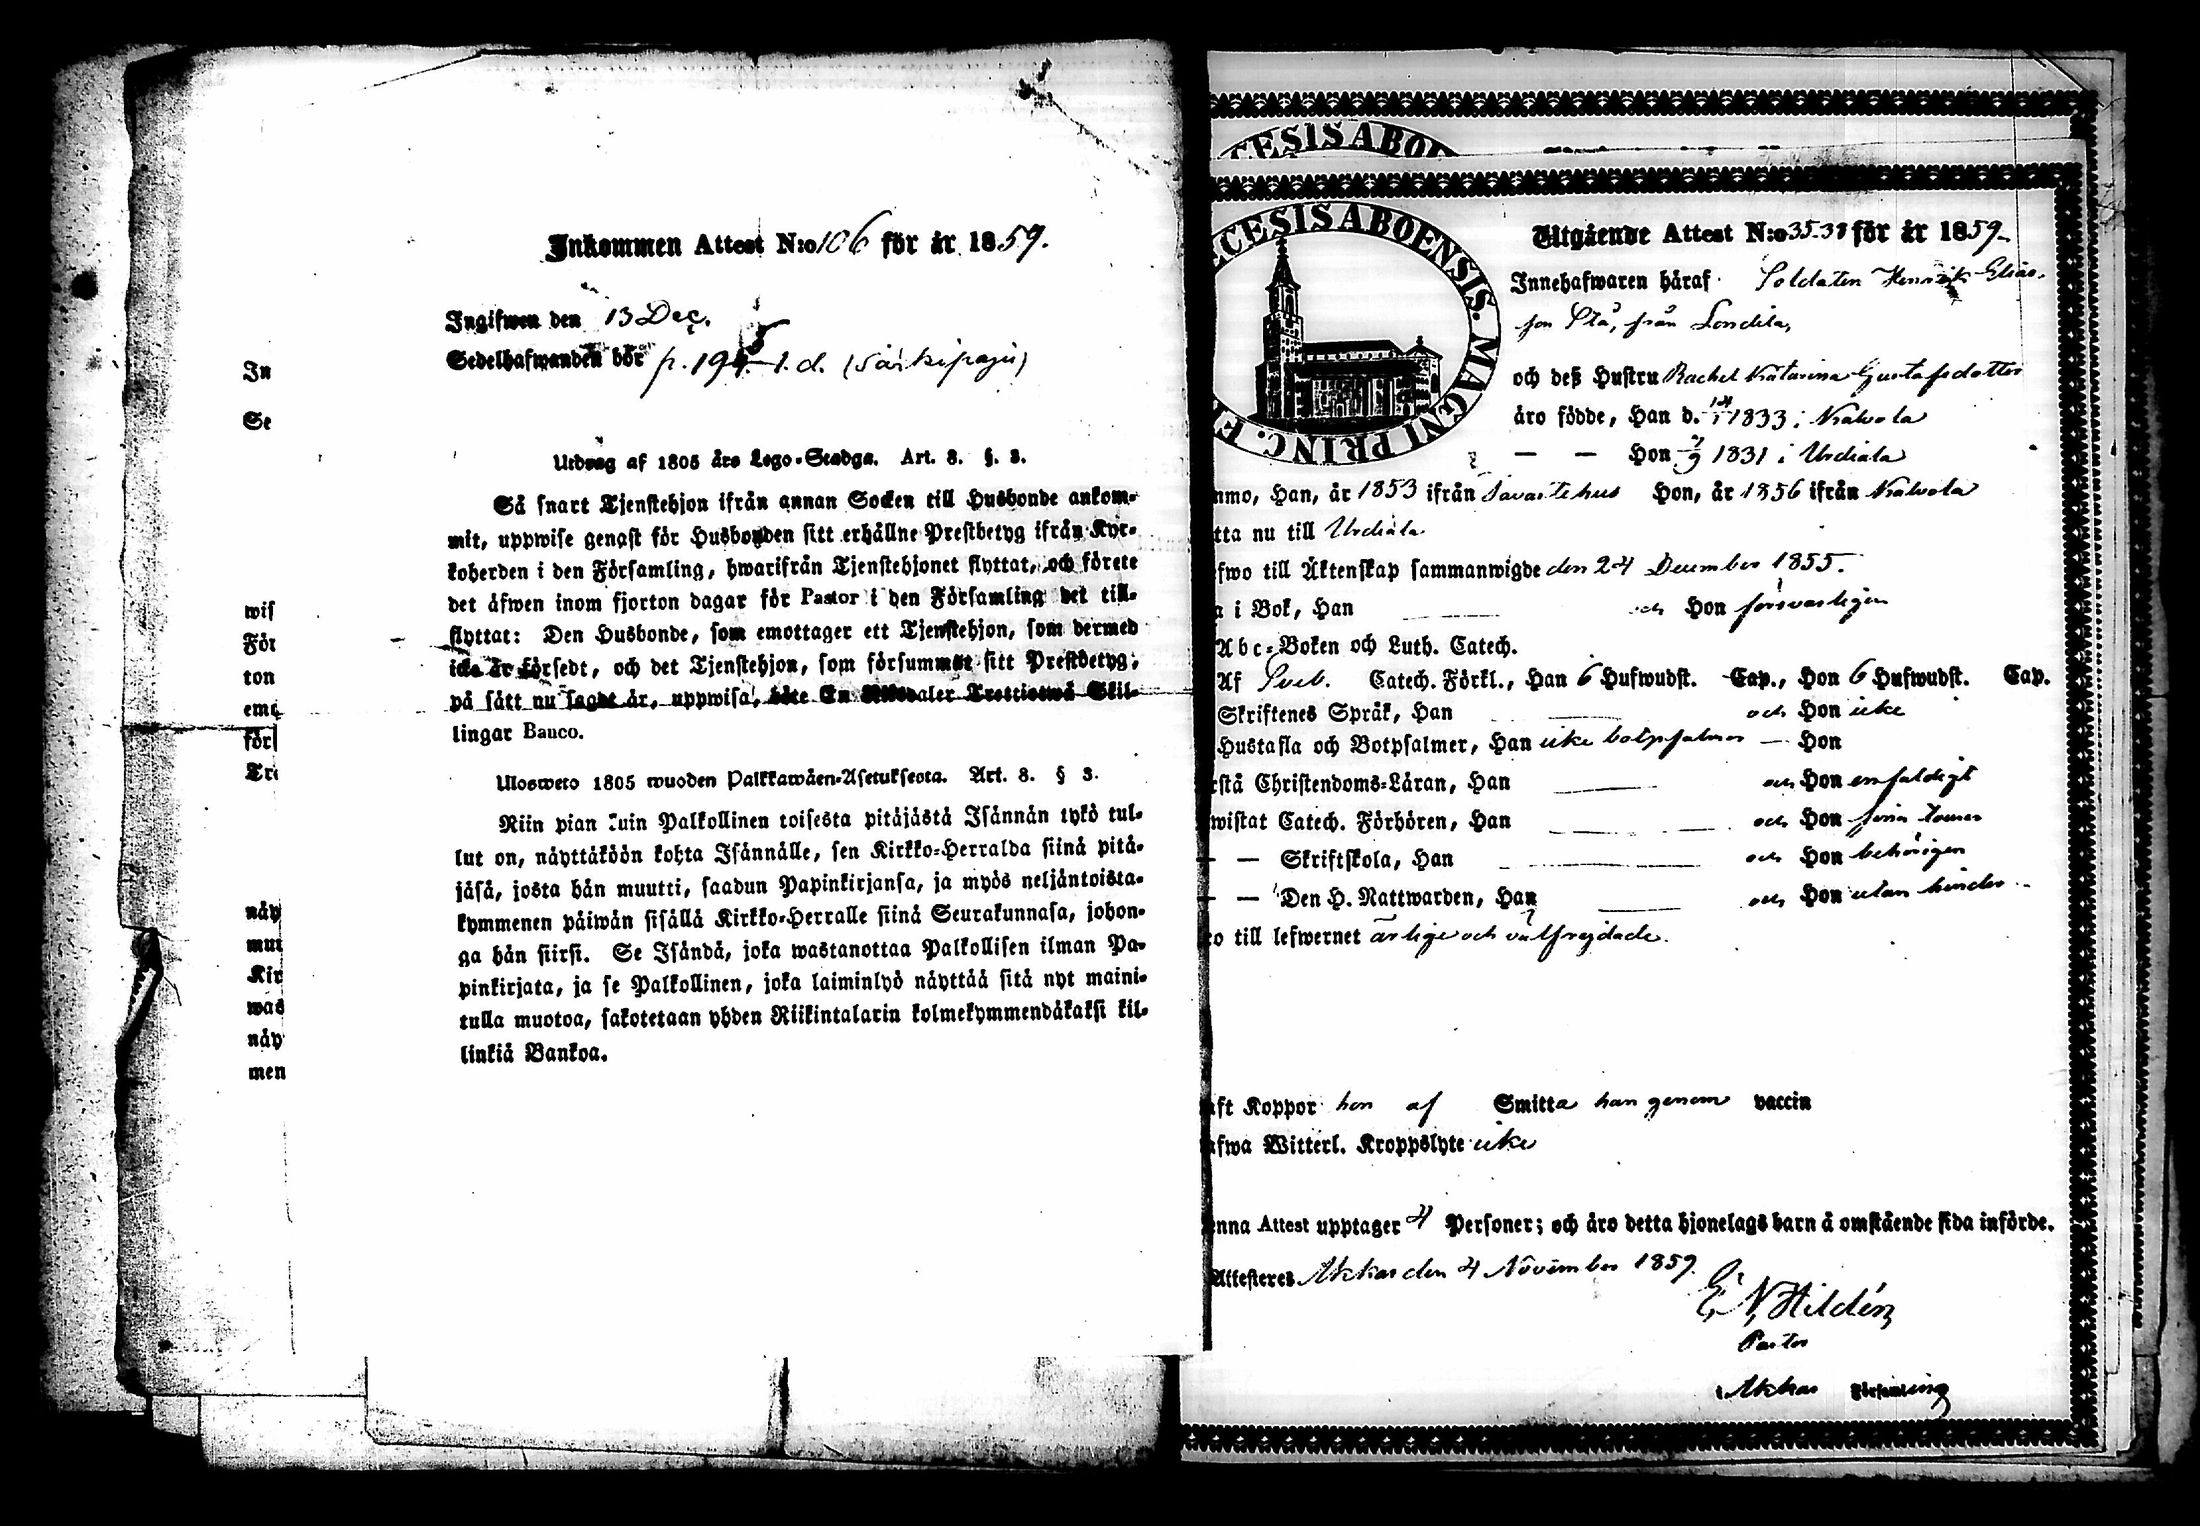 Inkommen Attest N:o 106 för år 1859.
Ingifwen den 13 Dec.
Sedelhafwanden bör p. 195 1. d. (Särkipaju)
Utdrag af 1805 års Lego-Stadga. Art. 8. §. 3.
Så snart Tjenstehjon ifrån annan Socken till Husbonde ankom-
mit, uppwise genast för Husbonden sitt erhållne Prestbetyg ifrån Kyr-
koherden i den Församling, hwarifrån Tjenstehjonet flyttat, och förete
det äfwen inom fjorton dagar för Pastor i den Församling det till-
flyttat: Den Husbonde, som emottager ett Tjenstehjon, som dermed
icke är försedt, och det Tjenstehjon, som försummat sitt Prestbetyg,
på sätt nu sagdt är, uppwisa, böte En Riksdaler Trettiotwå Skil-
lingar Banco.
Ulosweto 1805 wuoden Palkkawäen-Asetuksesta. Art. 8. § 3.
Niin pian kuin Palkollinen toisesta pitäjästä Isännän tykö tul-
lut on, näyttäköön kohta Isännälle, sen Kirkko-Herralda siinä pitä-
jäsä, josta hän muutti, saadun Papinkirjansa, ja myös neljäntoista-
kymmenen päiwän sisällä Kirkko-Herralle siinä Seurakunnasa, johon-
ga hän siirsi. Se Isändä, joka wastanottaa Palkollisen ilman Pa-
pinkirjata, ja se Palkollinen, joka laiminlyö näyttää sitä nyt maini-
tulla muotoa, sakotetaan yhden Riikintalarin kolmekymmendäkaksi kil-
linkiä Bankoa.
In
Se
wis
För
ton
emo
för
Tre
näy
muu
Kir
was
näy
men
CESIS ABOE
CESIS ABOENSIS. MAGNI PRINC. F
Utgående Attest N:o 35.38 för år 1859.
Innehafwaren häraf Soldaten Henrik Elias-
son Stå, från Sondila,
och deß Hustru Rachel Katarina Gustafsdotter
äro födde, Han d. 14/1 1833 i Kalvola
— — Hon 7/9 1831 i Urdiala
mmo, Han, år 1853 ifrån Tavastehus Hon, år 1856 ifrån Kalvola
tta nu till Urdiala
fwo till Äktenskap sammanwigde den 24 December 1855.
a i Bok, Han — och Hon försvarligen
Abc-Boken och Luth. Catech.
Af Sveb. Catech. Förkl., Han 6 Hufwudst. Cap., Hon 6 Hufwudst. Cap.
Skriftenes Språk, Han — och Hon icke
Hustafla och Botpsalmer, Han icke botpsalmer — Hon
rstå Christendoms-Läran, Han — och Hon enfaldigt
wistat Catech. Förhören, Han — och Hon
— — Skriftskola, Han — och Hon behörigen
— — Den H. Nattwarden, Han — och Hon utan hinder
ro till lefwernet ärlige och välfrejdade.
aft Koppor hon af Smitta han genom vaccin
afwa Witterl. Kroppslyte icke
enna Attest upptager 4 Personer; och äro detta hjonelags barn å omstående sida införde.
Attesteres Akkas den 4 November 1859.
E. N. Hildén
Pastor
i Akkas Församling